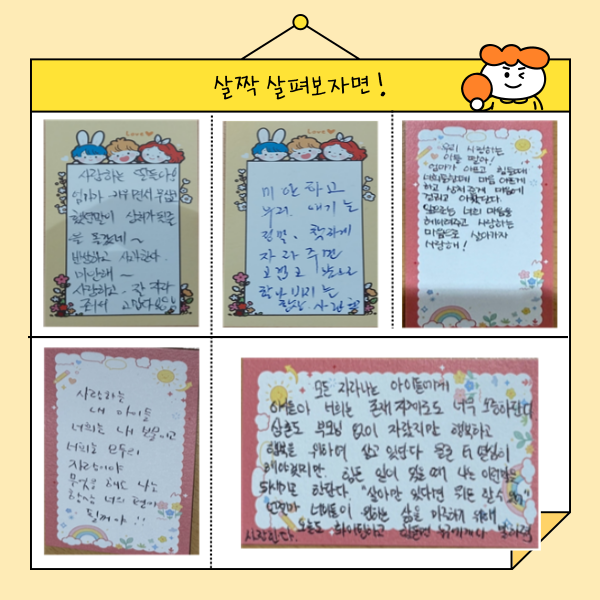 살짝 살펴보자면!
Love
사랑하는
엄마가
무심코
했던말이 상처가 된줄
을 몰랐네~
반성하고 사과한다.
미안해~
사랑하고 잘 자라
줘서 고맙다
Love
미안하고
우리 애기들
정말, 착하게
자라주면
고맙고
할머니는
항상 사랑해
우리 사랑하는
아들 딸아!
엄마가 아프고 힘들때
너희들한테 마음 아프게
하고 상처준게 마음에
걸리고 아팠단다.
앞으로는 너희 마음을
헤아려주고 사랑하는
마음으로 살아가자
사랑해!
사랑하는
내 아이들
너희는 내 보물이고
너희는 모두의
자랑이야
무엇을 해도 나는
항상 너의 편이
되께야!!
모든 자라나는 아이들에게
얘들아 너희는 존재 자체로도 너무 소중하단다
삼촌도 부모님 없이 자랐지만 행복하고
행복을 위하여 살고 있단다 물론 더 열심히
해야겠지만. 힘든 일이 있을 때 나는 이런말을
되새기곤 한단다. "살아만 있다면 뭐든 할 수 있어"
언젠가 너희들이 원하는 삶을 이루기 위해
오늘도
사랑한다.